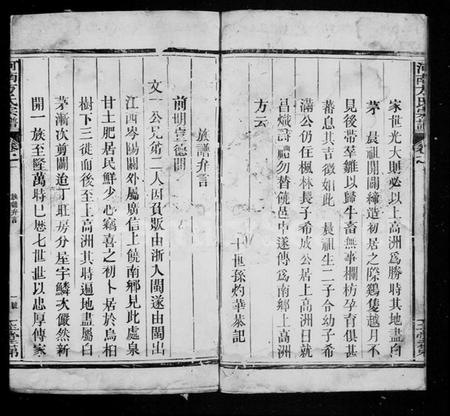 家世光大則必以上高洲爲勝時其地盡白
茅　晨祖開闢締造初居之際鷄隻越月不
見後帶羣雛以歸牛畜無事攔枋孕育俱甚
蕃息其吉徵如此　晨祖生二子令幼子希
滿公仍住楓林長子希成公居上高洲日就
昌熾詩禮勿替饒邑中遂傳爲南鄉上高洲
方云
十世孫灼華恭記
河南方氏宗譜
族譜弁言
前明宣德間
文一公兄弟二人因負販由浙入閩遂由閩出
江西岑陽關外屬廣信上饒南鄉見此處泉
甘土肥居民鮮少心竊喜之初卜居於烏桕
樹下三徙而後至上高洲其時遍地盡屬白
茅漸次剪闢迨丁壯房分屋宇鱗次儼然新
開一族至隆萬時已歷七世世以忠厚傳家
河南方氏宗譜
卷一
族譜弁言